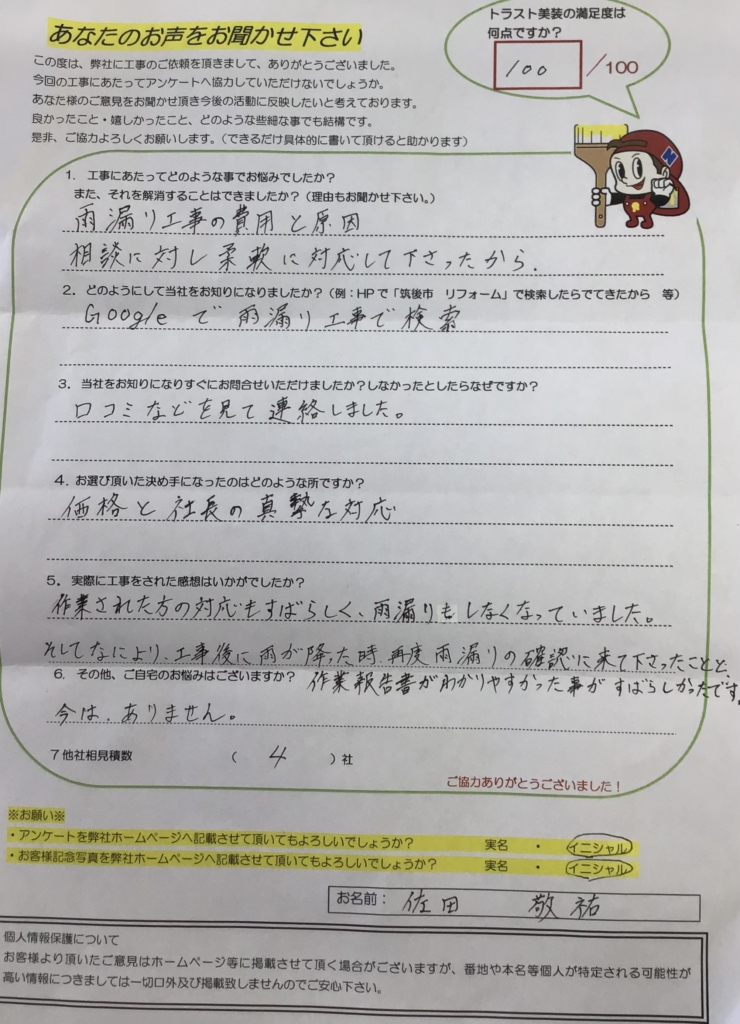 あなたのお声をお聞かせ下さい
トラスト美装の満足度は
何点ですか？
100 /100
この度は、弊社に工事のご依頼を頂きまして、ありがとうございました。
今回の工事にあたってアンケートへ協力していただけないでしょうか。
あなた様のご意見をお聞かせ頂き今後の活動に反映したいと考えております。
良かったこと・嬉しかったこと、どのような些細な事でも結構です。
是非、ご協力よろしくお願いします。（できるだけ具体的に書いて頂けると助かります）
N
1．工事にあたってどのような事でお悩みでしたか？
また、それを解消することはできましたか？（理由もお聞かせ下さい。）
雨漏り工事の費用と原因
相談に対し柔軟に対応して下さったから．
2．どのようにして当社をお知りになりましたか？（例：HPで「筑後市 リフォーム」で検索したらでてきたから 等）
Googleで雨漏り工事で検索
3．当社をお知りになりすぐにお問合せいただけましたか？しなかったとしたらなぜですか？
口コミなどを見て連絡しました。
4．お選び頂いた決め手になったのはどのような所ですか？
価格と社長の真摯な対応
5．実際に工事をされた感想はいかがでしたか？
作業された方の対応もすばらしく、雨漏りもしなくなっていました。
そしてなにより、工事後に雨が降った時、再度雨漏りの確認に来て下さったことと、
作業報告書がわかりやすかった事がすばらしかったです。
6．その他、ご自宅のお悩みはございますか？
今は、ありません。
7 他社相見積数 （ 4 ）社
ご協力ありがとうございました！
※お願い※
・アンケートを弊社ホームページへ記載させて頂いてもよろしいでしょうか？ 実名 ・ イニシャル
・お客様記念写真を弊社ホームページへ記載させて頂いてもよろしいでしょうか？ 実名 ・ イニシャル
お名前： 佐田 敬祐
個人情報保護について
お客様より頂いたご意見はホームページ等に掲載させて頂く場合がございますが、番地や本名等個人が特定される可能性が
高い情報につきましては一切口外及び掲載致しませんのでご安心下さい。